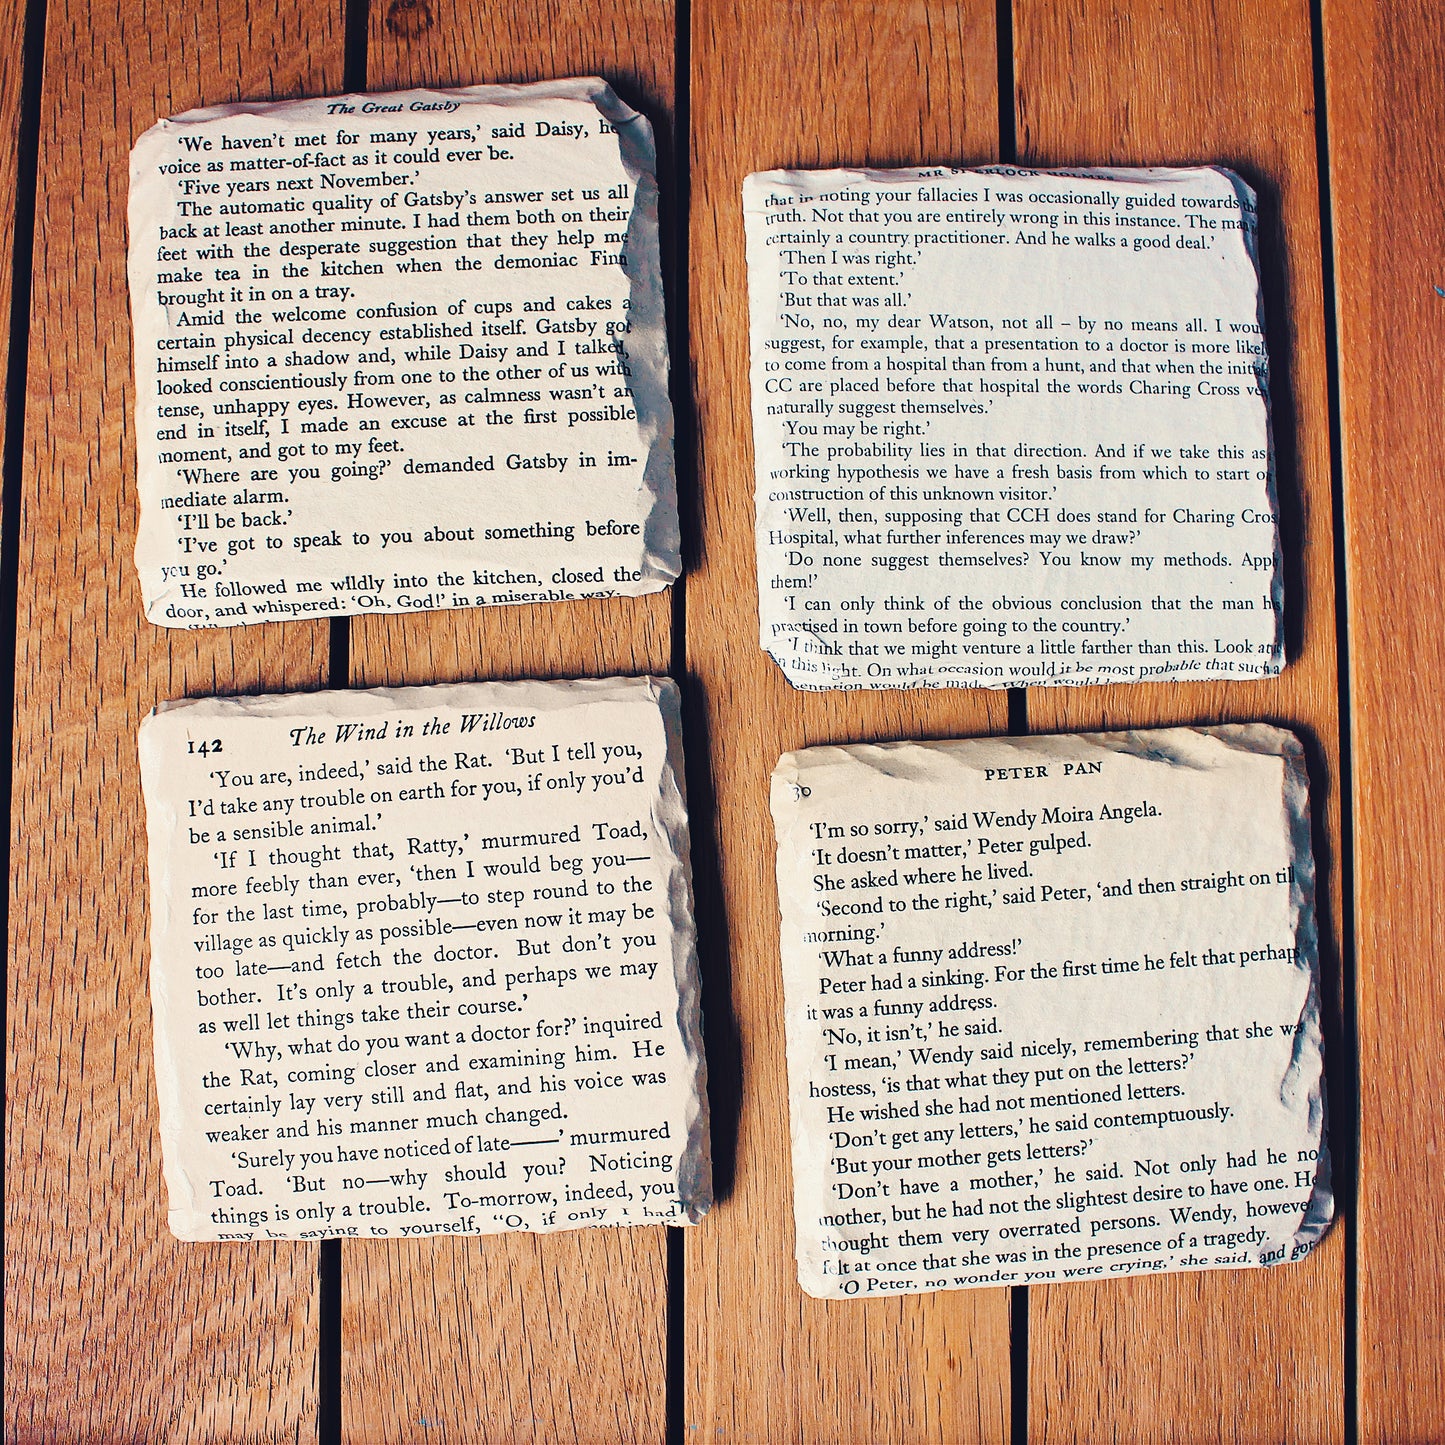 The Great Gatsby
‘We haven’t met for many years,’ said Daisy,
voice as matter-of-fact as it could ever be.
‘Five years next November.’
The automatic quality of Gatsby’s answer set us all
back at least another minute. I had them both on their
feet with the desperate suggestion that they help me
make tea in the kitchen when the demoniac Finn
brought it in on a tray.
Amid the welcome confusion of cups and cakes a
certain physical decency established itself. Gatsby got
himself into a shadow and, while Daisy and I talked,
looked conscientiously from one to the other of us with
tense, unhappy eyes. However, as calmness wasn’t an
end in itself, I made an excuse at the first possible
moment, and got to my feet.
‘Where are you going?’ demanded Gatsby in im-
mediate alarm.
‘I’ll be back.’
‘I’ve got to speak to you about something before
you go.’
He followed me wildly into the kitchen, closed the
door, and whispered: ‘Oh, God!’ in a miserable way.
MR SHERLOCK HOLMES
that in noting your fallacies I was occasionally guided towards
truth. Not that you are entirely wrong in this instance. The man
certainly a country practitioner. And he walks a good deal.’
‘Then I was right.’
‘To that extent.’
‘But that was all.’
‘No, no, my dear Watson, not all – by no means all. I
suggest, for example, that a presentation to a doctor is more
to come from a hospital than from a hunt, and that when the
CC are placed before that hospital the words Charing Cross
naturally suggest themselves.’
‘You may be right.’
‘The probability lies in that direction. And if we take this as
working hypothesis we have a fresh basis from which to start
construction of this unknown visitor.’
‘Well, then, supposing that CCH does stand for Charing
Hospital, what further inferences may we draw?’
‘Do none suggest themselves? You know my methods.
them!’
‘I can only think of the obvious conclusion that the man
practised in town before going to the country.’
‘I think that we might venture a little farther than this. Look at
in this light. On what occasion would it be most probable that such a
would be made When would
142 The Wind in the Willows
‘You are, indeed,’ said the Rat. ‘But I tell you,
I’d take any trouble on earth for you, if only you’d
be a sensible animal.’
‘If I thought that, Ratty,’ murmured Toad,
more feebly than ever, ‘then I would beg you—
for the last time, probably—to step round to the
village as quickly as possible—even now it may be
too late—and fetch the doctor. But don’t you
bother. It’s only a trouble, and perhaps we may
as well let things take their course.’
‘Why, what do you want a doctor for?’ inquired
the Rat, coming closer and examining him. He
certainly lay very still and flat, and his voice was
weaker and his manner much changed.
‘Surely you have noticed of late——’ murmured
Toad. ‘But no—why should you? Noticing
things is only a trouble. To-morrow, indeed, you
may be saying to yourself, “O, if only I had
30 PETER PAN
‘I’m so sorry,’ said Wendy Moira Angela.
‘It doesn’t matter,’ Peter gulped.
She asked where he lived.
‘Second to the right,’ said Peter, ‘and then straight on till
morning.’
‘What a funny address!’
Peter had a sinking. For the first time he felt that perhaps
it was a funny address.
‘No, it isn’t,’ he said.
‘I mean,’ Wendy said nicely, remembering that she was
hostess, ‘is that what they put on the letters?’
He wished she had not mentioned letters.
‘Don’t get any letters,’ he said contemptuously.
‘But your mother gets letters?’
‘Don’t have a mother,’ he said. Not only had he no
mother, but he had not the slightest desire to have one. He
thought them very overrated persons. Wendy, however
felt at once that she was in the presence of a tragedy.
‘O Peter, no wonder you were crying,’ she said, and got